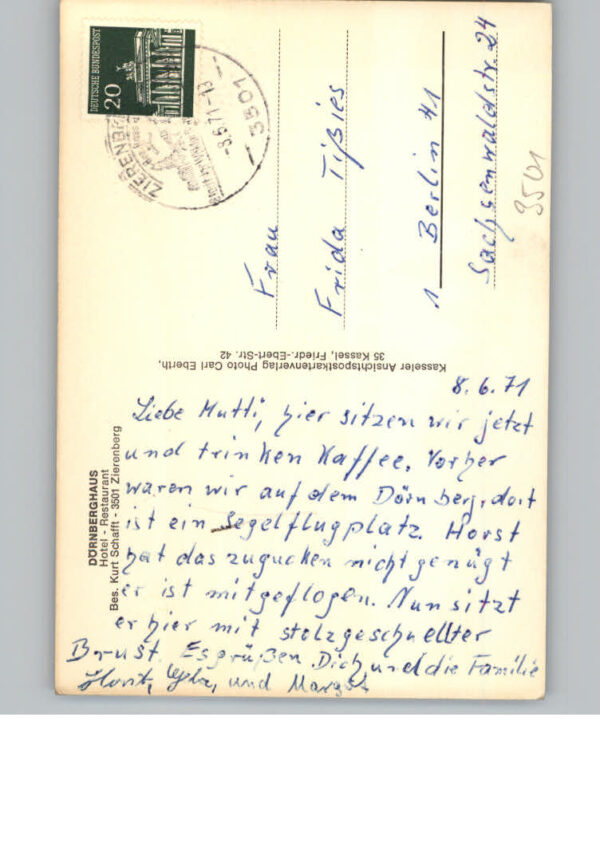 DÖRNBERGHAUS
Hotel - Restaurant
Bes. Kurt Schafft - 3501 Zierenberg
8.6.71
Liebe Mutti, hier sitzen wir jetzt
und trinken Kaffee. Vorher
waren wir auf dem Dörnberg, dort
ist ein Segelflugplatz. Horst
hat das zugucken nicht genügt
er ist mitgeflogen. Nun sitzt
er hier mit stolzgeschwellter
Brust. Es grüßen Dich und die Familie
Horst, und Margot
Kasseler Ansichtspostkartenverlag Photo Carl Eberth,
35 Kassel, Friedr.-Ebert-Str. 42
DEUTSCHE BUNDESPOST
20
3501
-8.6.71-13
Frau
Frida Tißies
1 Berlin 41
Sachsenwaldstr. 24
3501